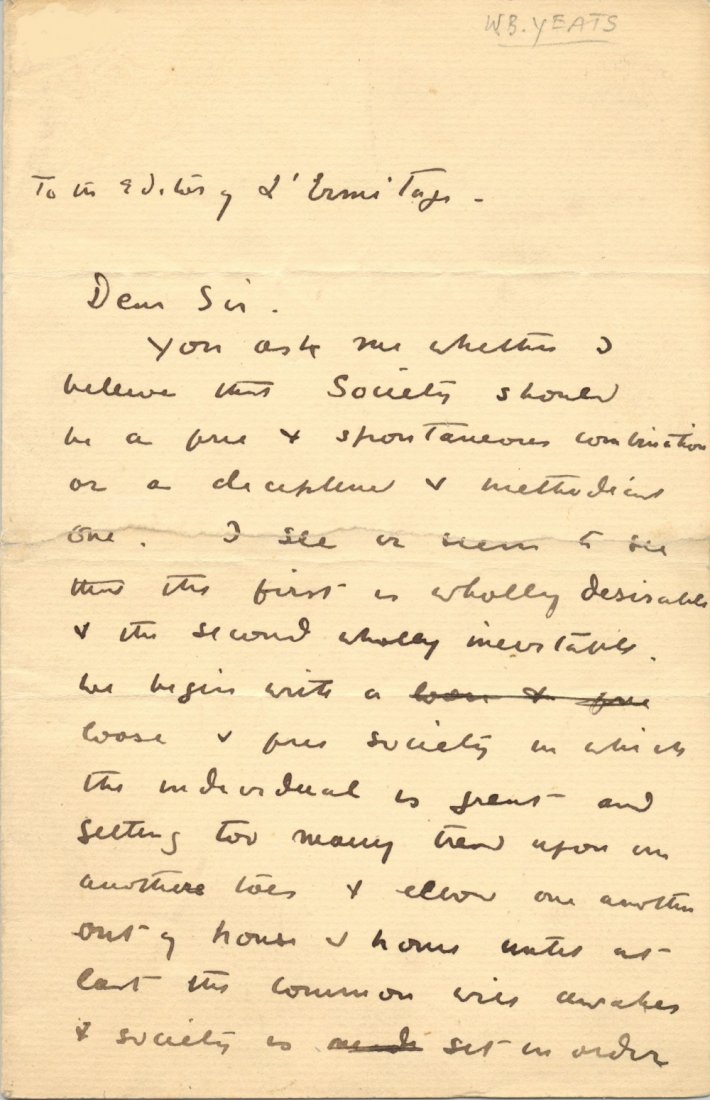 W.B. YEATS
To the Editor of L'Ermitage.
Dear Sir.
You ask me whether I
believe that Society should
be a free & spontaneous combination
or a disciplined & methodical
one. I see or seem to see
that the first is wholly desirable
& the second wholly inevitable.
We begin with a loose & free
loose & free society in which
the individual is great and
getting too many tread upon one
anothers toes & elbow one another
out of house & home until at
last the common will awakes
& society is set in order